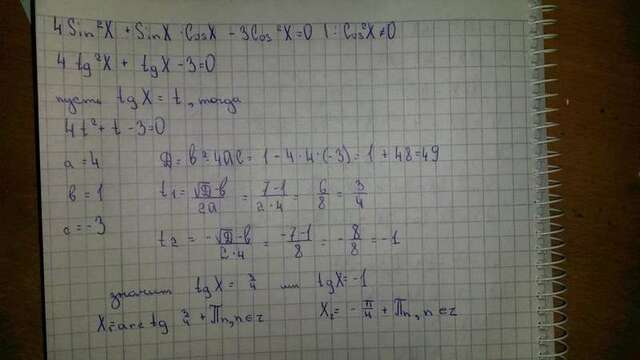 4 Sin²X + SinX · CosX - 3Cos²X=0 | : Cos²X≠0
4 tg²X + tgX - 3=0
пусть tgX = t, тогда
4t²+t-3=0
a = 4 D = b²-4ac = 1 - 4·4·(-3) = 1 + 48 = 49
b = 1 t₁ = (√D-b)/2a = (7-1)/2·4 = 6/8 = 3/4
c = -3 t₂ = (-√D-b)/2·4 = (-7-1)/8 = -8/8 = -1
значит tgX = 3/4 или tgX = -1
X₁=arctg 3/4 + Πn, n∈z X₂= -π/4 + Πn, n∈z